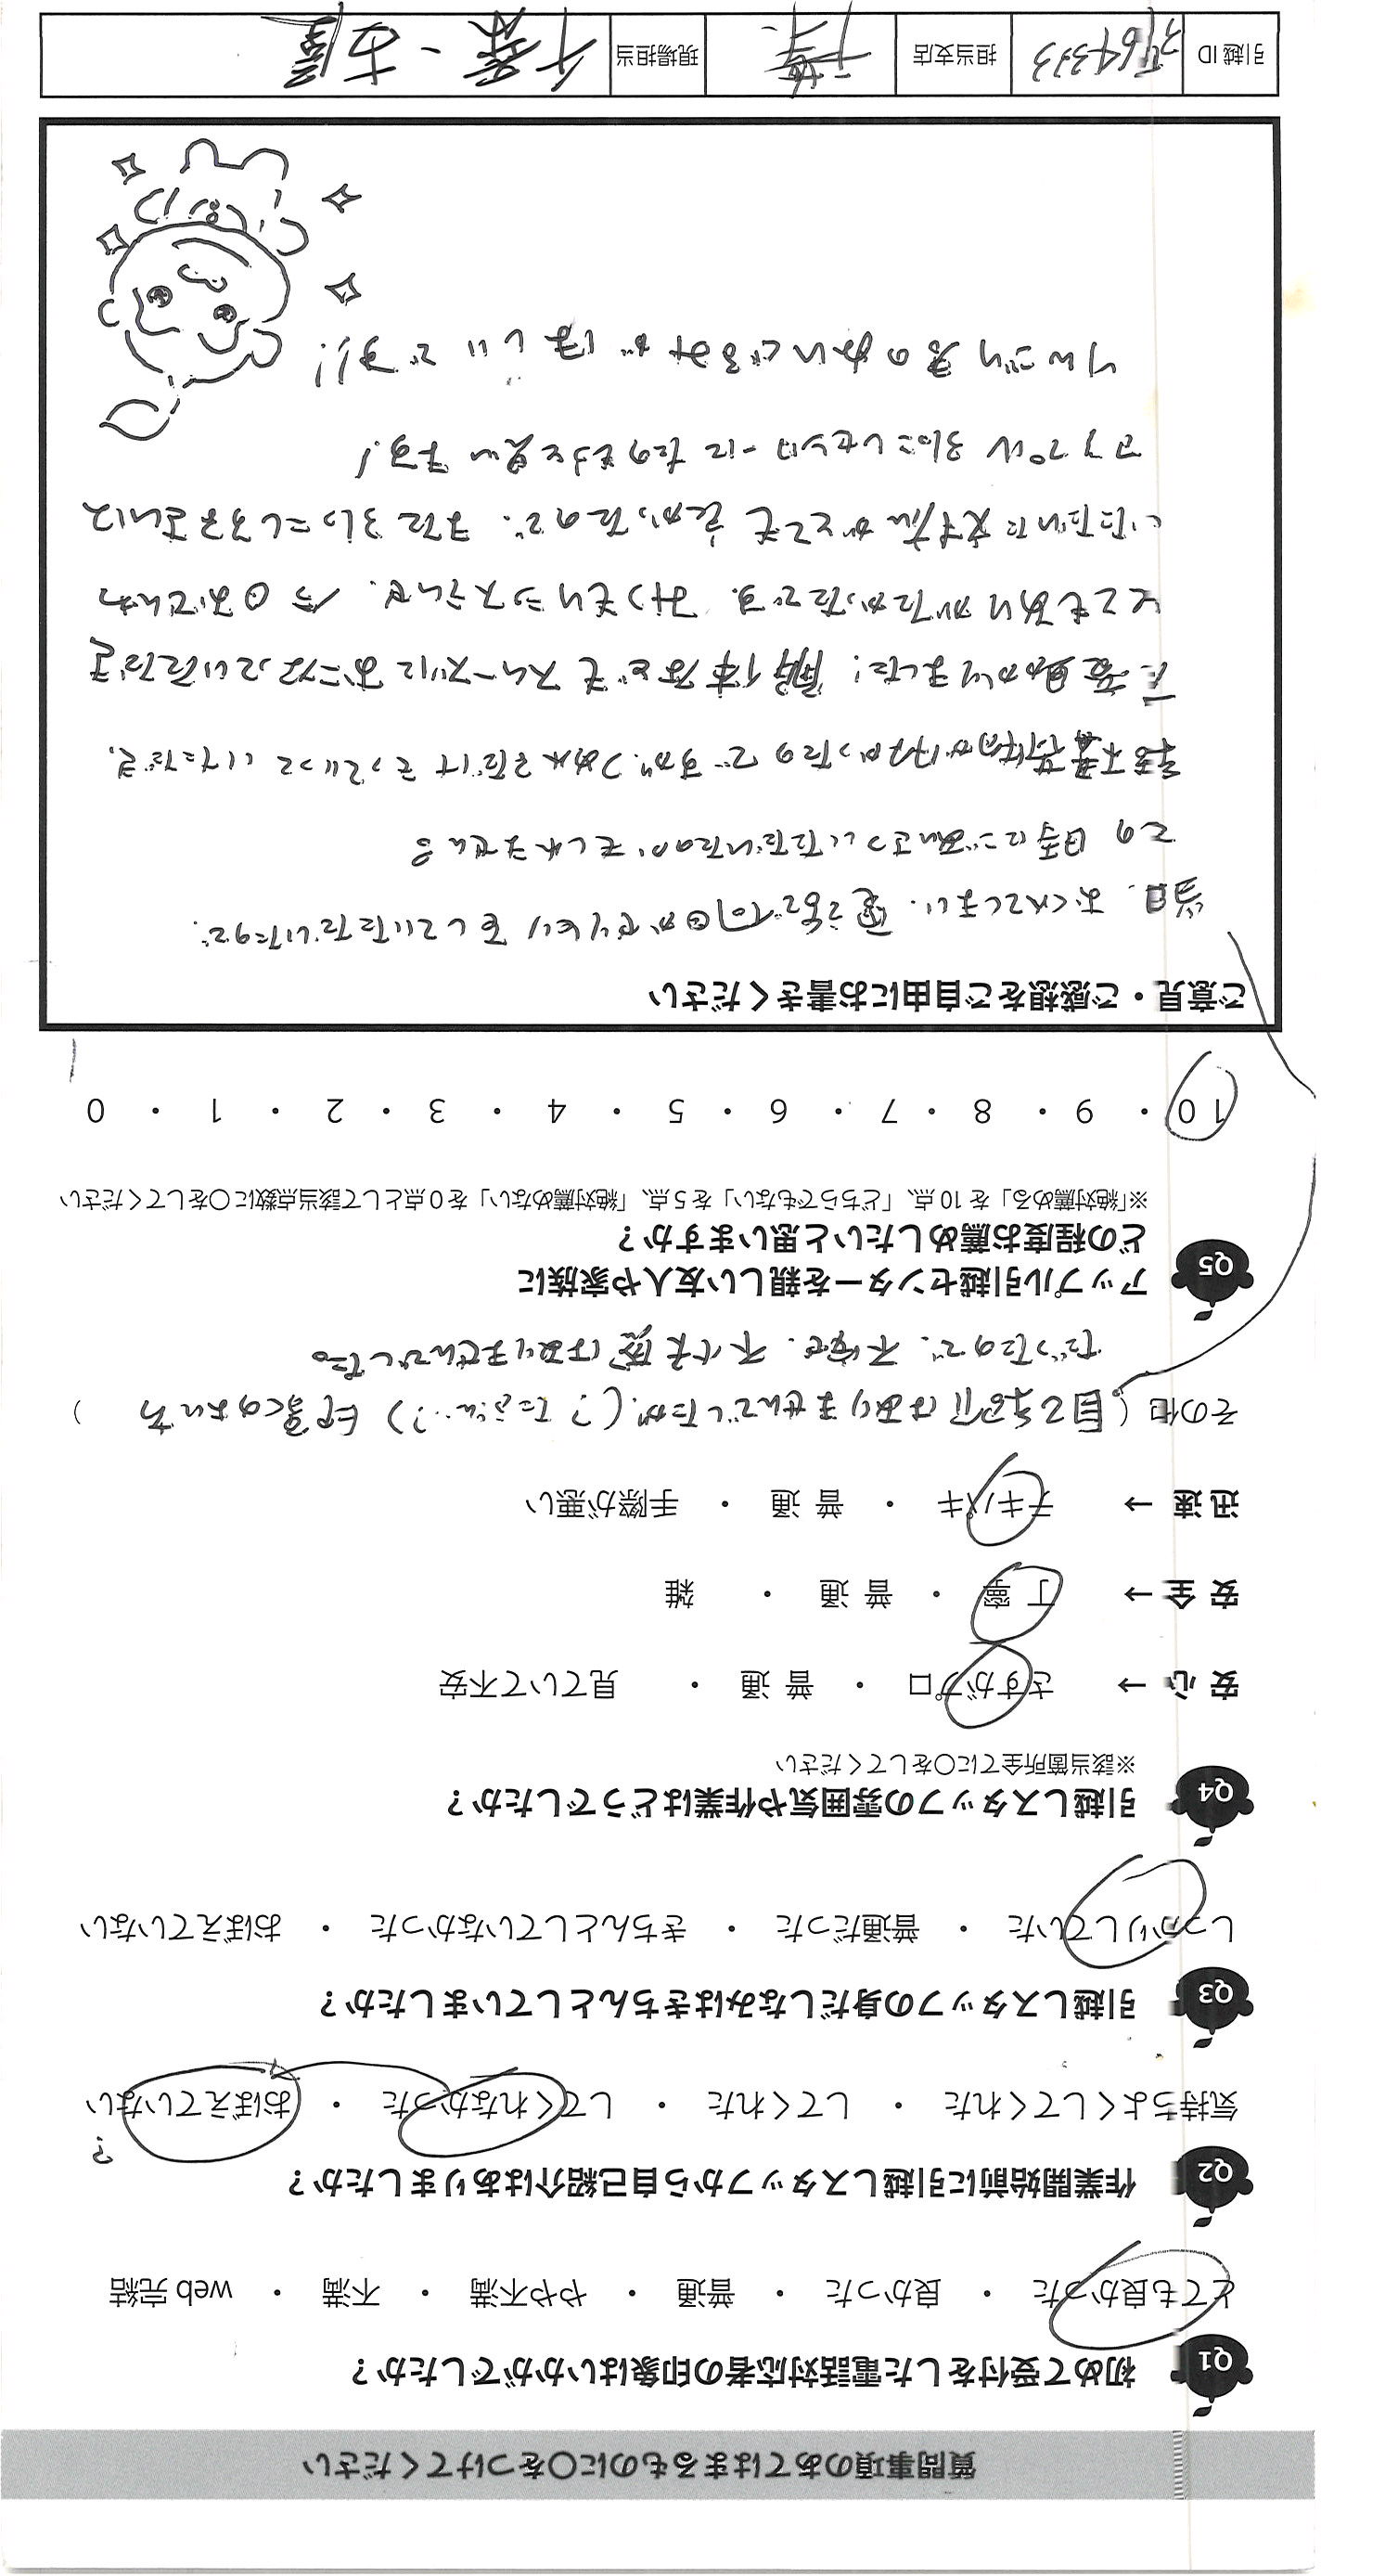 質問事項のあてはまるものに○をつけてください
Q1 初めて受付をした電話対応者の印象はいかがでしたか？
とても良かった ・ 良かった ・ 普通 ・ やや不満 ・ 不満 ・ web 完結
Q2 作業開始前に引越しスタッフから自己紹介はありましたか？
?
気持ちよくしてくれた ・ してくれた ・ してくれなかった ・ おぼえていない
Q3 引越しスタッフの身だしなみはきちんとしていましたか？
しっかりしていた ・ 普通だった ・ きちんとしていなかった ・ おぼえていない
Q4 引越しスタッフの雰囲気や作業はどうでしたか？
※該当箇所全てに○をしてください
安 心 → さすがプロ ・ 普 通 ・ 見ていて不安
安 全 → 丁 寧 ・ 普 通 ・ 雑
迅 速 → テキパキ ・ 普 通 ・ 手際が悪い
その他（自己紹介はありませんでしたが、(?たぶん…?) 印象のよい方 ）
だったので、不安や、不信感はありませんでした。
Q5 アップル引越センターを親しい友人や家族に
どの程度お薦めしたいと思いますか？
※「絶対薦める」を 10 点、「どちらでもない」を 5 点、「絶対薦めない」を 0 点として該当点数に○をしてください
10 ・ 9 ・ 8 ・ 7 ・ 6 ・ 5 ・ 4 ・ 3 ・ 2 ・ 1 ・ 0
ご意見・ご感想をご自由にお書きください
当日、おくれてしまい、電話で何回かやりとりをしていただいたので、
その時にごあいさついただいたかもしれません。
荷物が多かったのですが、つめれるだけもっていっていただき、
助かりました! 解体などもスムーズにおこなっていただき
とてもありがたかったです。みつもりシステムや、今回おてんわ
いただいた方がとても良かったので、またひっこしするさいは
アップルひっこしセンターにたのもうと思います!
りんごり君のぬいぐるみがほしいです!!
引越 ID
担当支店 千葉
現場担当 千葉・古屋